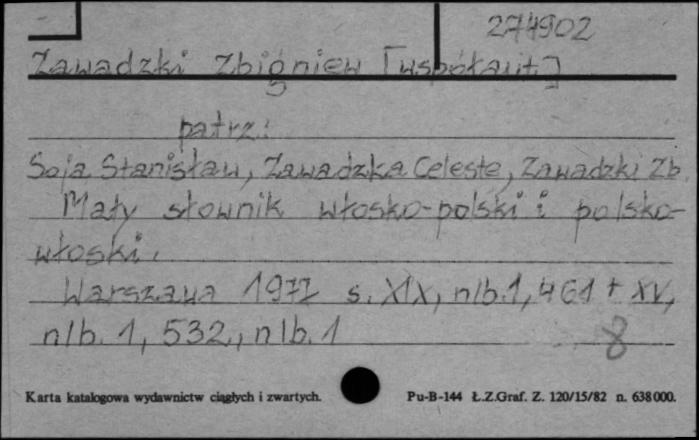 274902
Zawadzki Zbigniew [współaut.]
patrz:
Soja Stanisław, Zawadzka Celeste, Zawadzki Zb.
Mały słownik włosko-polski i polsko-
włoski.
Warszawa 1977 s. XIX, nlb. 1, 461 + XV,
nlb. 1, 532, nlb. 1
8
Karta katalogowa wydawnictw ciągłych i zwartych. Pu-B-144 Ł.Z.Graf. Z. 120/15/82 n. 638000.